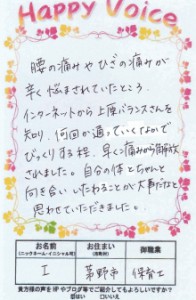 Happy Voice
腰の痛みやひざの痛みが
辛く悩まされていたところ
インターネットから上屋バランスさんを
知り、何回か通っていくなかで
びっくりする程、早く痛みから解放
されました。自分の体とちゃんと
向き合いいたわることが大事だなと
思わせていただきました。
お名前 お住まい 御職業
(ニックネーム・イニシャル可) (市町村)
I 茅野市 保育士
貴方様の声をHPやブログ等でご紹介してもよろしいですか?
はい □いいえ